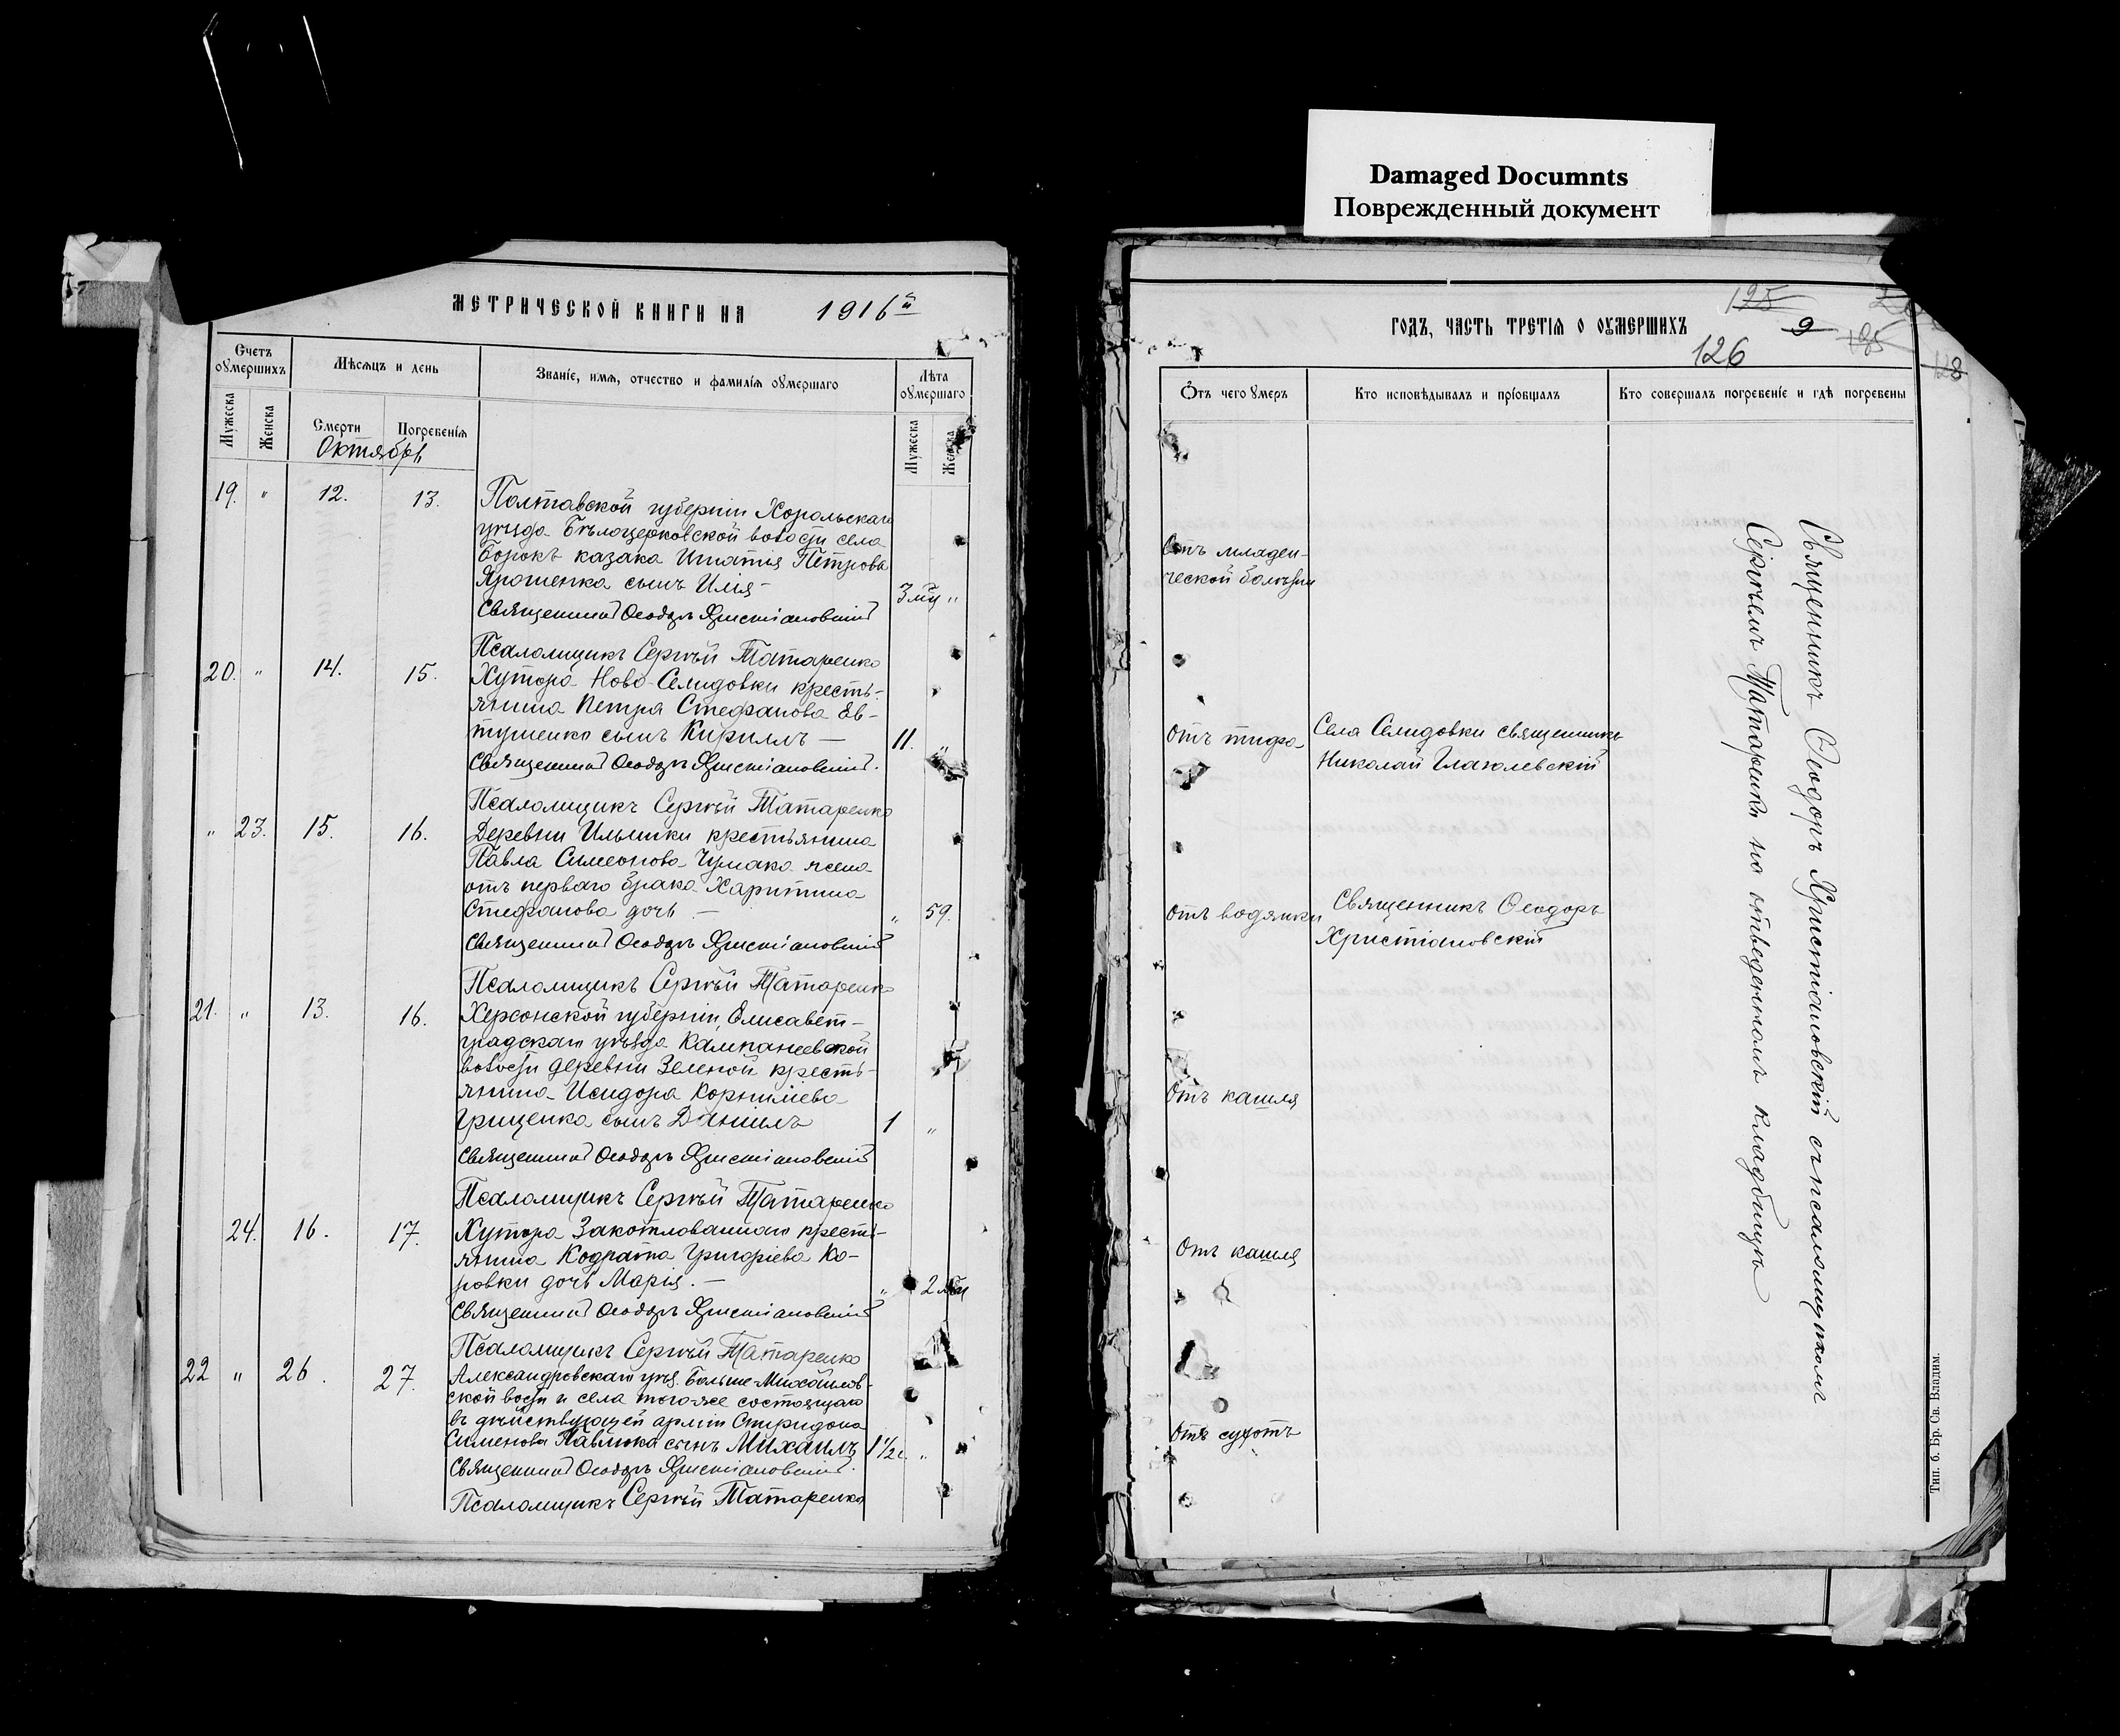 Damaged Documnts
Поврежденный документ
МЕТРИЧЕСКОЙ КНИГИ НА 1916й
Счетъ оумершихъ
Мѣсяцъ и день
Званіе, имя, отчество и фамилія оумершаго
Лѣта оумершаго
Мужеска
Женска
Смерти
Погребенія
Мужеска
Женска
Октябрь
19. " 12. 13. Полтавской губерніи Хорольскаго
уѣзда Бѣлоцерковской волости села
Борокъ казака Игнатія Петрова
Ярошенка сынъ Илія 3 мц "
Священникъ Ѳеодоръ Христіановскій
Псаломщикъ Сергѣй Татаренко
20. " 14. 15. Хутора Ново-Селидовки кресть-
янина Петра Стефанова Ев-
тушенко сынъ Кириллъ — 11. "
Священникъ Ѳеодоръ Христіановскій.
Псаломщикъ Сергѣй Татаренко
" 23. 15. 16. Деревни Ильинки крестьянина
Павла Симеонова Чумака жена
отъ перваго брака Харитина
Стефанова дочь — " 59.
Священникъ Ѳеодоръ Христіановскій
Псаломщикъ Сергѣй Татаренко
21. " 13. 16. Херсонской губерніи, Елисавет-
градскаго уѣзда Кампанеевской
волости деревни Зеленой кресть-
янина Исидора Корниліева
Грищенка сынъ Даніилъ 1 "
Священникъ Ѳеодоръ Христіановскій
Псаломщикъ Сергѣй Татаренко
24. 16. 17. Хутора Закотлованнаго кресть-
янина Кодрата Григоріева Ко-
ровки дочь Марія. — " 2
Священникъ Ѳеодоръ Христіановскій
Псаломщикъ Сергѣй Татаренко
22 " 26. 27. Александровскаго уѣз. Больше-Михайлов-
ской вол и села тогоже состоящаго
въ дѣйствующей арміи Спиридона
Сименова Павлюка сынъ Михаилъ 1 1/2 "
Священникъ Ѳеодоръ Христіановскій.
Псаломщикъ Сергѣй Татаренко
ГОДЪ, ЧАСТЬ ТРЕТІЯ О ОУМЕРШИХЪ
125
9
126
185
128
Отъ чего умеръ
Кто исповѣдывалъ и пріобщалъ
Кто совершалъ погребеніе и гдѣ погребены
Отъ младен-
ческой болѣзни
Отъ тифа
Села Селидовки священникъ
Николай
Отъ водянки
Священникъ Ѳеодоръ
Христіановскій
Отъ кашля
Отъ кашля
Отъ сухотъ
Священникъ Ѳеодоръ Христіановскій съ псаломщикомъ
Сергѣемъ Татаренко на отведенномъ кладбищѣ
Тип. б. Бр. Св. Владим.